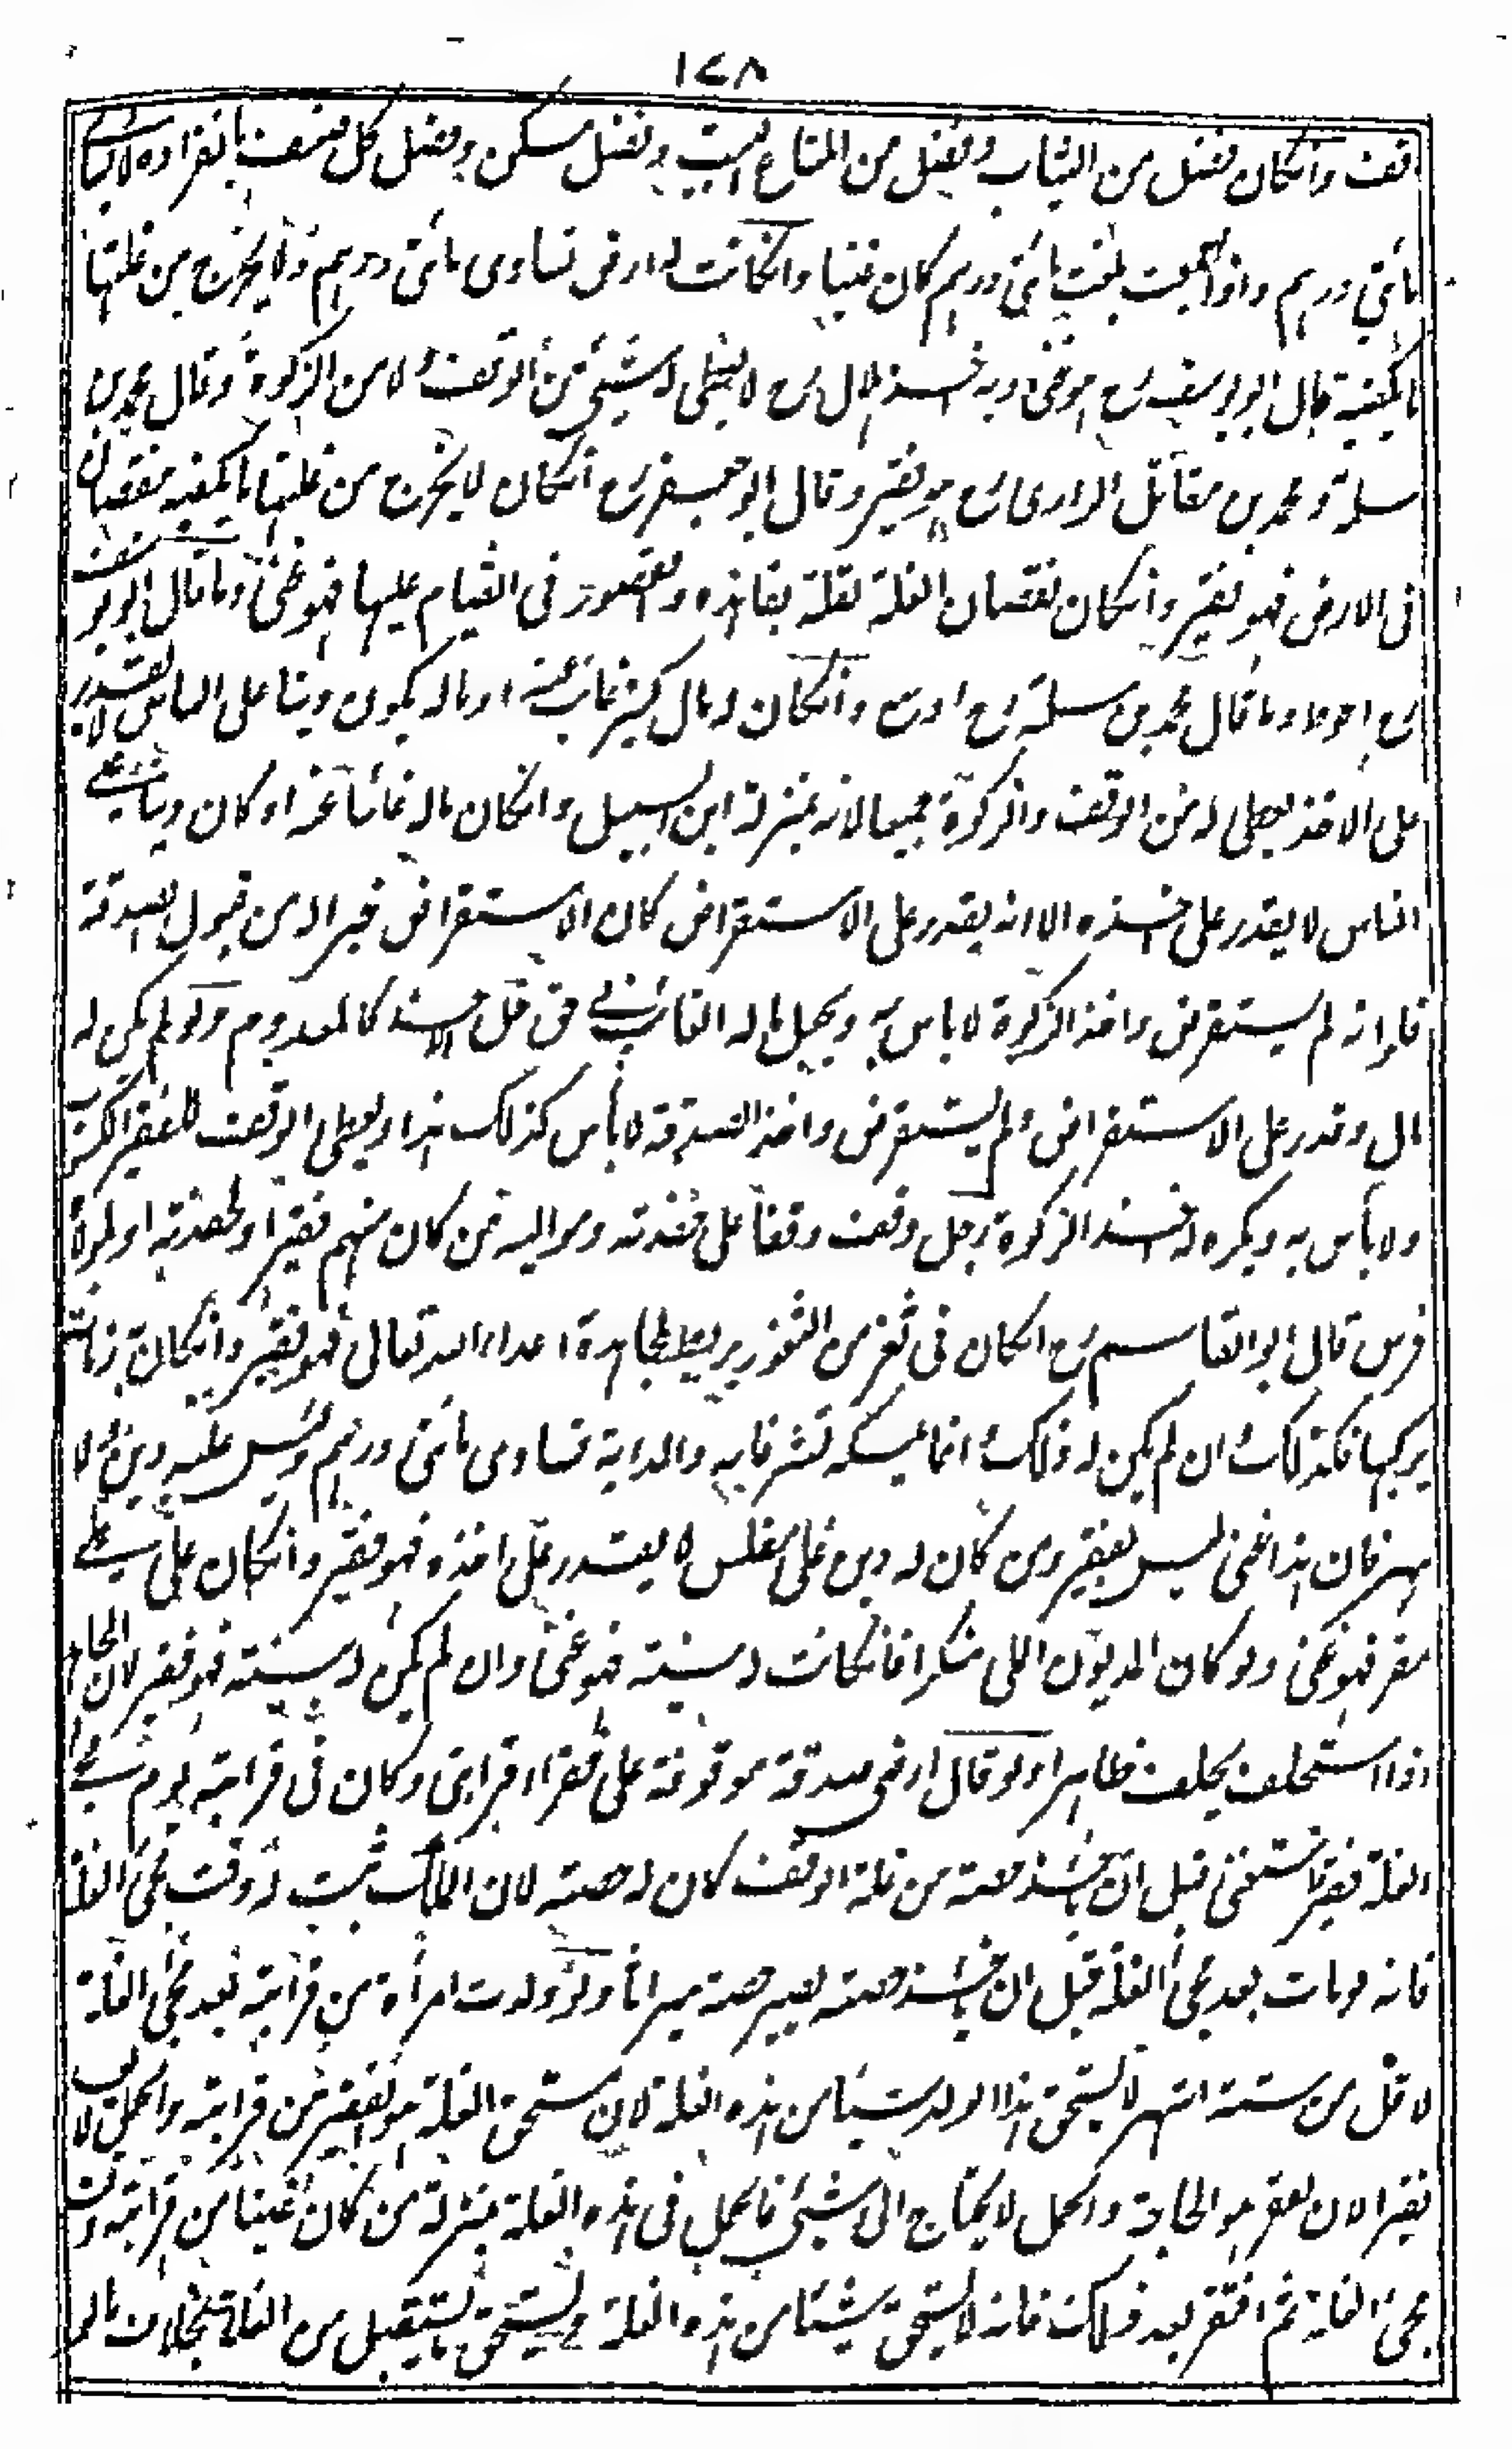 ١٤٨
الوقف وانكان فضل من الثياب وفضل من المتاع البيت وفضل مسكن وفضل كل صنف بانفراده لايساوى
مائتى درهم واذا جمعت بلغت مائتى درهم كان غنيا وانكانت له ارض تساوى مائتى درهم ولا يخرج من غلتها
ما يكفيه قال ابو يوسف رح هو غنى وبه اخذ هلال رح لا يعطى له شيئ من الوقف ولا من الزكوة وقال محمد بن
سلمة ومحمد بن مقاتل الرازى رح هو فقير وقال ابو جعفر رح انكان لا يخرج من غلتها ما يكفيه لنقصان
فى الارض فهو فقير وانكان نقصان الغلة لقلة تعاهده وبقصور فى القيام عليها فهو غنى وما قال ابو يوسف
رح احوط وما قال محمد بن سلمة رح اوسع وانكان له مال كثير غائب عنه او ماله يكون دينا على الناس لا يقدر
على الاخذ يعطى له من الوقف والزكوة جميعا لانه بمنزلة ابن السبيل وانكان ماله غائبا عنه او كان دينا على
الناس لا يقدر على اخذه الا انه يقدر على الاستقراض كان الاستقراض خيرا له من قبول الصدقة
فلو انه لم يستقرض واخذ الزكوة لا باس به ويجعل ماله الغائب فى حق حل الاخذ كالمعدوم ولو لم يكن له
مال وقدر على الاستقراض ولم يستقرض واخذ الصدقة لا بأس كذلك هذا ويعطى الوقف للفقير الكسوب
ولا بأس به ويكره له اخذ الزكوة رجل وقف وقفا على حفدته ومواليه فمن كان منهم فقيرا ولحفدته او لمولاه
فرس قال ابو القاسم رح انكان فى ثغر من الثغور يربطه لمجاهدة اعداء الله تعالى فهو فقير وانكان به زمانة
يركبها فكذلك وان لم يكن له ذلك وانما يمسكه تشرفا به والدابة تساوى مائتى درهم وليس عليه دين ولا
مهر فان هذا غنى ليس بفقير ومن كان له دين على مفلس لا يقدر على اخذه فهو فقير وانكان على ملى
مقر فهو غنى ولو كان المديون الملى منكرا فانكانت له بينة فهو غنى وان لم يكن له بينة فهو فقير لان الجاحد
اذا استحلف يحلف ظاهرا ولو قال ارضى صدقة موقوفة على فقراء قرابتى وكان فى قرابته يوم مجئ
الغلة فقير فاستغنى قبل ان ياخذ حصته من غلة الوقف كان له حصته لان الملك ثبت له وقت مجئ الغلة
فانه لو مات بعد مجئ الغلة قبل ان ياخذ حصته يصير حصته ميراثا ولو ولدت امرأة من قرابته بعد مجئ الغلة
لاقل من ستة اشهر لا يستحق هذا الولد شيئا من هذه الغلة لان مستحق الغلة هو الفقير من قرابته والحمل لا يعد
فقيرا لان الفقر هو الحاجة والحمل لا يحتاج الى شيئ فالحمل فى هذه الغلة بمنزلة من كان غنيا من قرابته وقت
مجئ الغلة ثم افتقر بعد ذلك فانه لا يستحق شيئا من هذه الغلة ويستحق ما يستقبل من الغلة بخلاف ما لو